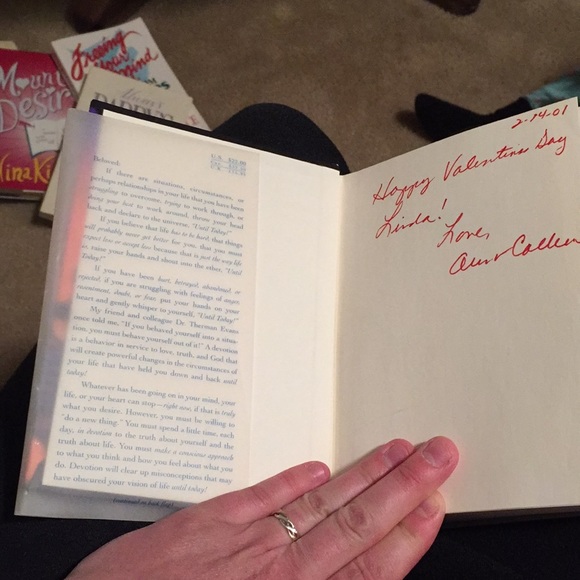 Mount
Desir
Nina Ki
Freeing
your
mind
U.S. $22.00
Beloved:
If there are situations, circumstances, or
perhaps relationships in your life that you have been
struggling to overcome, trying to work through, or
doing your best to work around, throw your head
back and declare to the universe, "Until Today!"
If you believe that life has to be hard; that things
will probably never get better for you, that you must
expect less or accept less because that is just the way life
is, raise your hands and shout into the ether, "Until
Today!"
If you have been hurt, betrayed, abandoned, or
rejected, if you are struggling with feelings of anger,
resentment, doubt, or fear, put your hands on your
heart and gently whisper to yourself, "Until Today!"
My friend and colleague Dr. Therman Evans
once told me, "If you behaved yourself into a situa-
tion, you must behave yourself out of it!" A devotion
is a behavior in service to love, truth, and God that
will create powerful changes in the circumstances of
your life that have held you down and back until
today!
Whatever has been going on in your mind, your
life, or your heart can stop—right now, if that is truly
what you desire. However, you must be willing to
"do a new thing." You must spend a little time, each
day, in devotion to the truth about yourself and the
truth about life. You must make a conscious approach
to what you think and how you feel about what you
do. Devotion will clear up misconceptions that may
have obscured your vision of life until today!
(continued on back flap)
2-14-01
Happy Valentines Day
Linda!
Love,